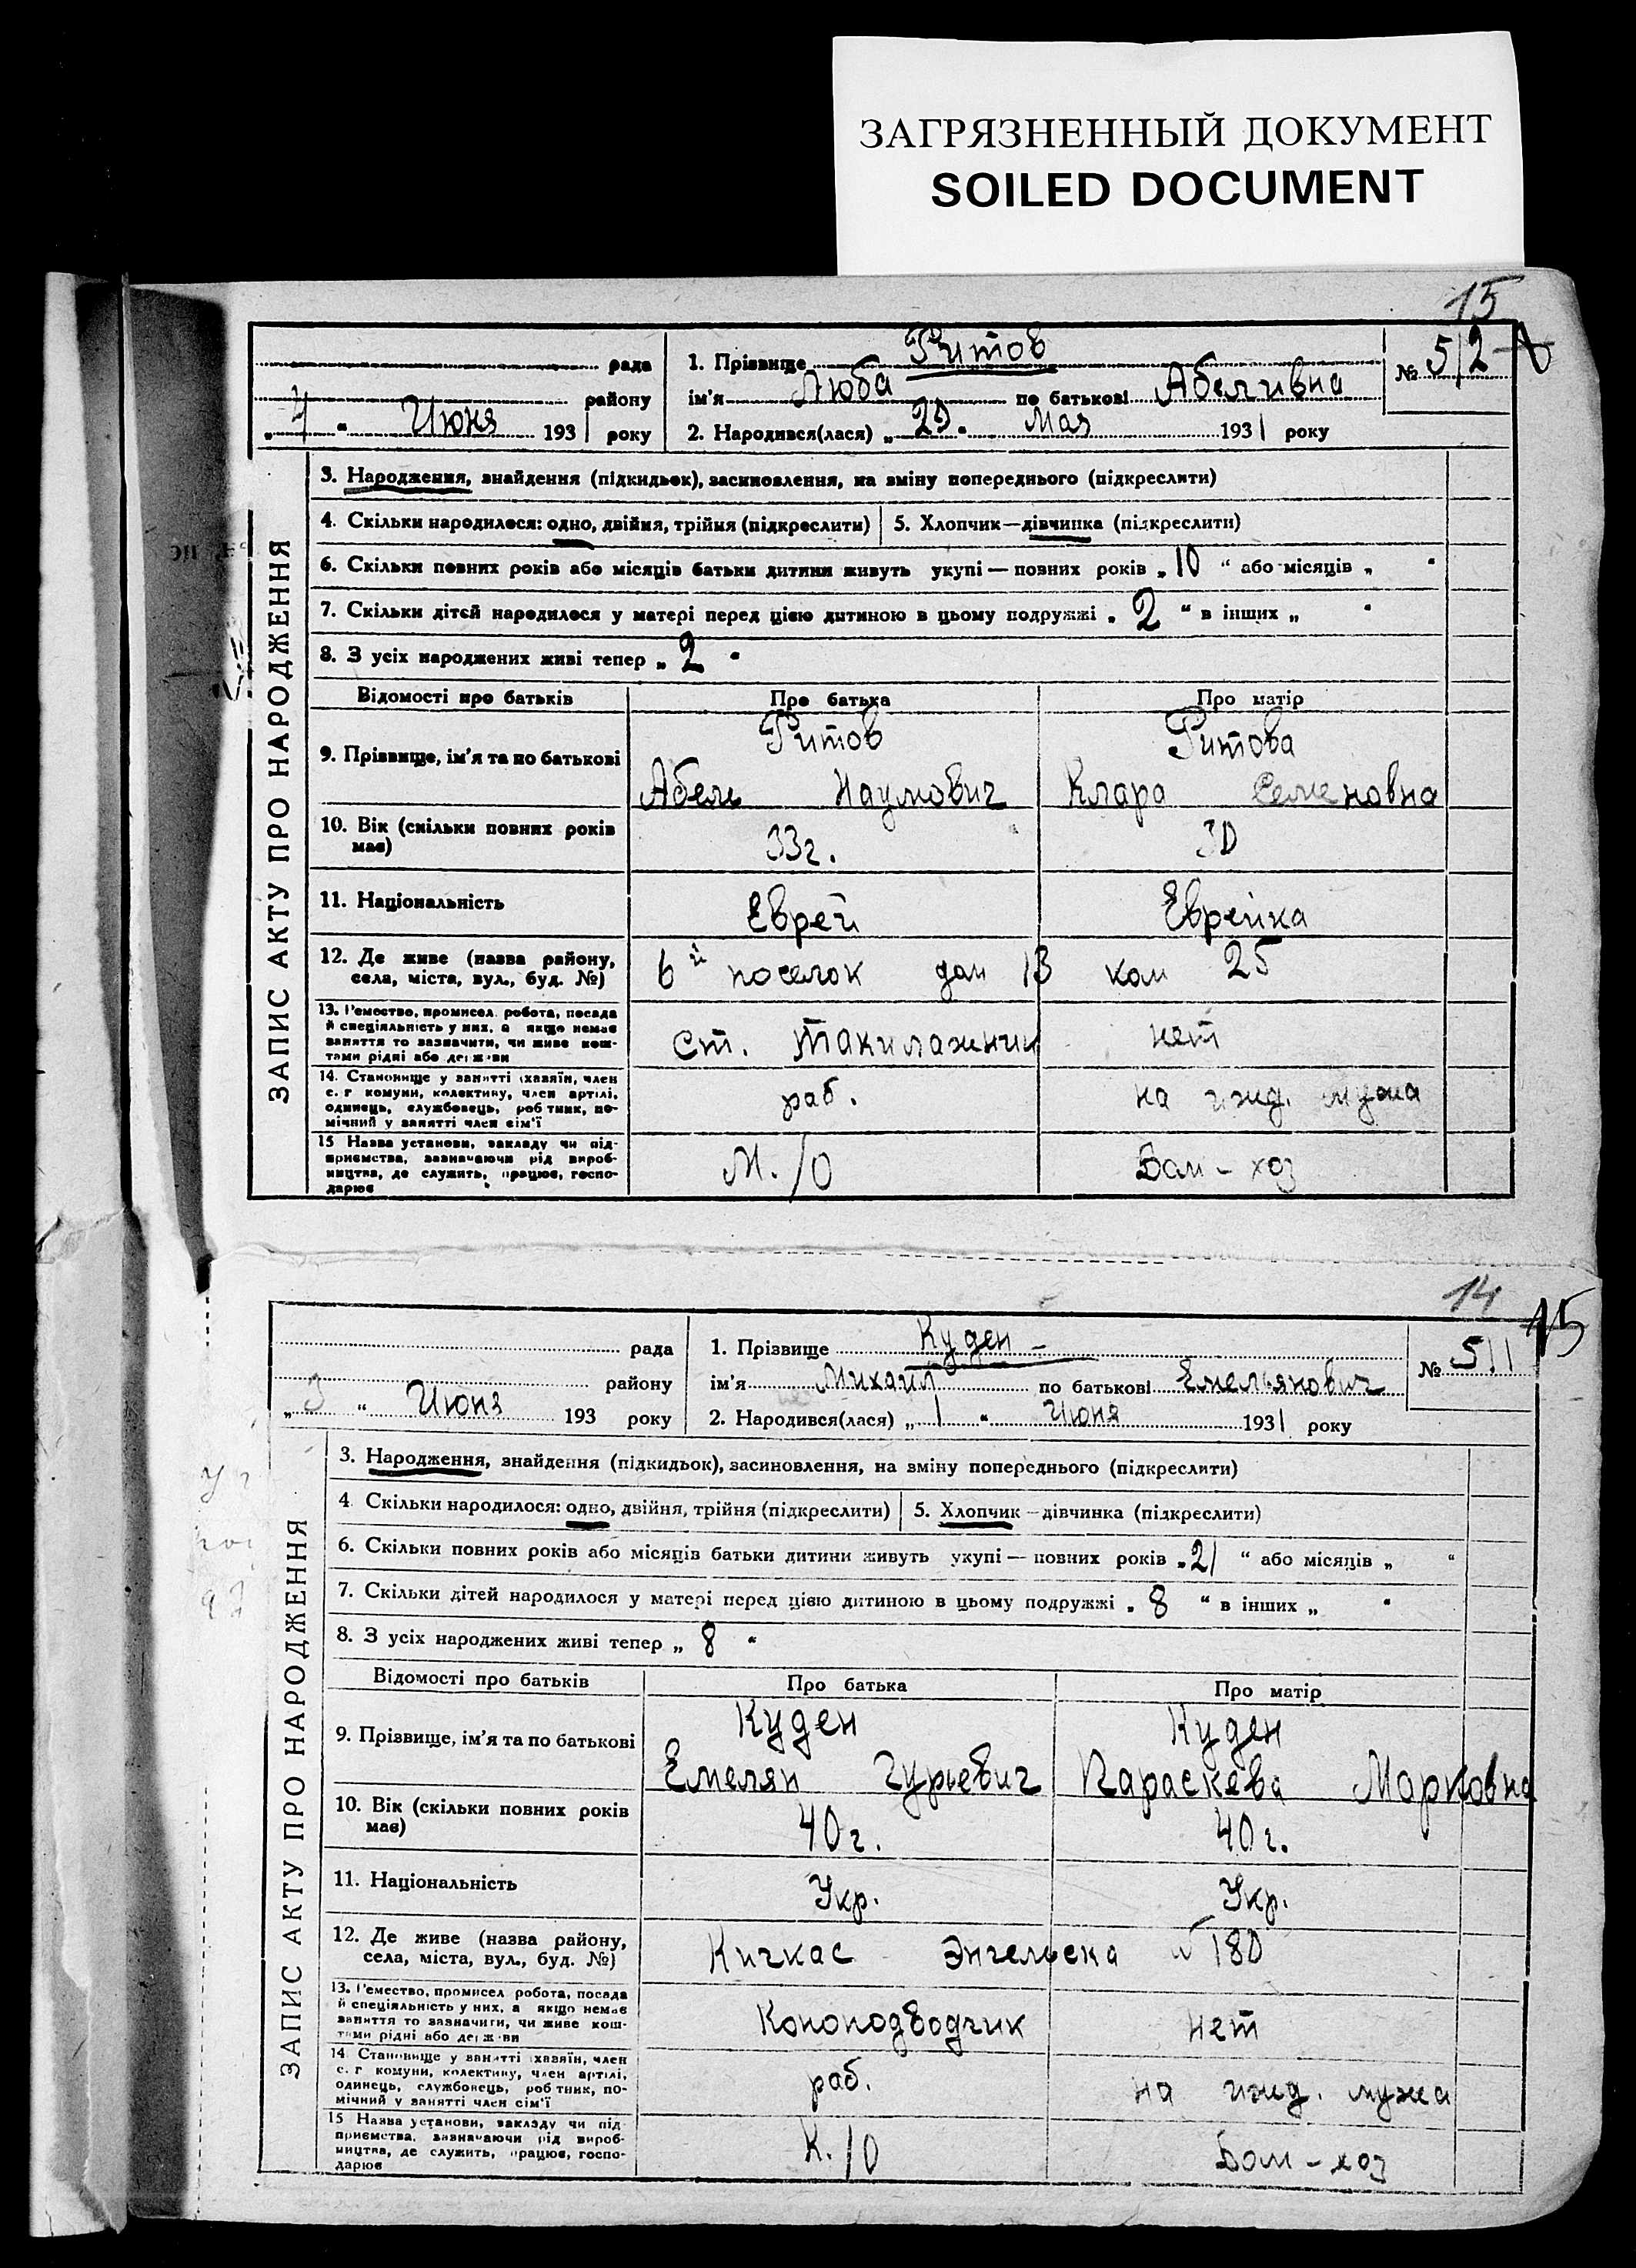 ЗАГРЯЗНЕННЫЙ ДОКУМЕНТ
SOILED DOCUMENT
15
рада
району
„ 4 “ Июня 1931 року
1. Прізвище Ритов
ім'я Люба по батькові Абеливна
2. Народився(лася) „ 29 “ Мая 1931 року
№ 512
ЗАПИС АКТУ ПРО НАРОДЖЕННЯ
3. Народження, знайдення (підкидьок), засиновлення, на зміну попереднього (підкреслити)
4. Скільки народилося: одно, двійня, трійня (підкреслити) 5. Хлопчик—дівчинка (підкреслити)
6. Скільки повних років або місяців батьки дитини живуть укупі — повних років „ 10 “ або місяців „ “
7. Скільки дітей народилося у матері перед цією дитиною в цьому подружжі „ 2 “ в інших „ “
8. З усіх народжених живі тепер „ 2 “
Відомості про батьків Про батька Про матір
9. Прізвище, ім'я та по батькові
Ритов Ритова
Абель Наумович Клара Семеновна
10. Вік (скільки повних років має) 33г. 30
11. Національність Еврей Еврейка
12. Де живе (назва району, села, міста, вул., буд. №)
6й поселок дом 13 ком 25
13. Ремество, промисел, робота, посада й спеціяльність у них, а якщо немає заняття то зазначити, чи живе коштами рідні або держави
ст. Такилажник нет
14. Становище у занятті (хазяїн, член с. г комуни, колективу, член артілі, одинець, службовець, робітник, помічний у занятті член сім'ї
раб. на ижд. мужа
15 Назва установи, закладу чи підприємства, зазначаючи рід виробництва, де служить, працює, господарює
М./О Дом-хоз
14
15
рада
району
„ 3 “ Июня 193 року
1. Прізвище Куден
ім'я Михаил по батькові Емельянович
2. Народився(лася) „ 1 “ Июня 1931 року
№ 511
ЗАПИС АКТУ ПРО НАРОДЖЕННЯ
3. Народження, знайдення (підкидьок), засиновлення, на зміну попереднього (підкреслити)
4. Скільки народилося: одно, двійня, трійня (підкреслити) 5. Хлопчик—дівчинка (підкреслити)
6. Скільки повних років або місяців батьки дитини живуть укупі — повних років „ 21 “ або місяців „ “
7. Скільки дітей народилося у матері перед цією дитиною в цьому подружжі „ 8 “ в інших „ “
8. З усіх народжених живі тепер „ 8 “
Відомості про батьків Про батька Про матір
9. Прізвище, ім'я та по батькові
Куден Куден
Емелян Гурьевич Параскева Марковна
10. Вік (скільки повних років має) 40г. 40г.
11. Національність Укр. Укр.
12. Де живе (назва району, села, міста, вул., буд. №)
Кичкас Энгельска № 180
13. Ремество, промисел робота, посада й спеціяльність у них, а якщо немає заняття то зазначити, чи живе коштами рідні або держави
Коноподводчик нет
14 Становище у занятті (хазяїн, член с. г комуни, колективу, член артілі, одинець, службовець, робітник, помічний у занятті член сім'ї
раб. на ижд. мужа
15 Назва установи, закладу чи підприємства, зазначаючи рід виробництва, де служить, працює, господарює
К./О Дом-хоз